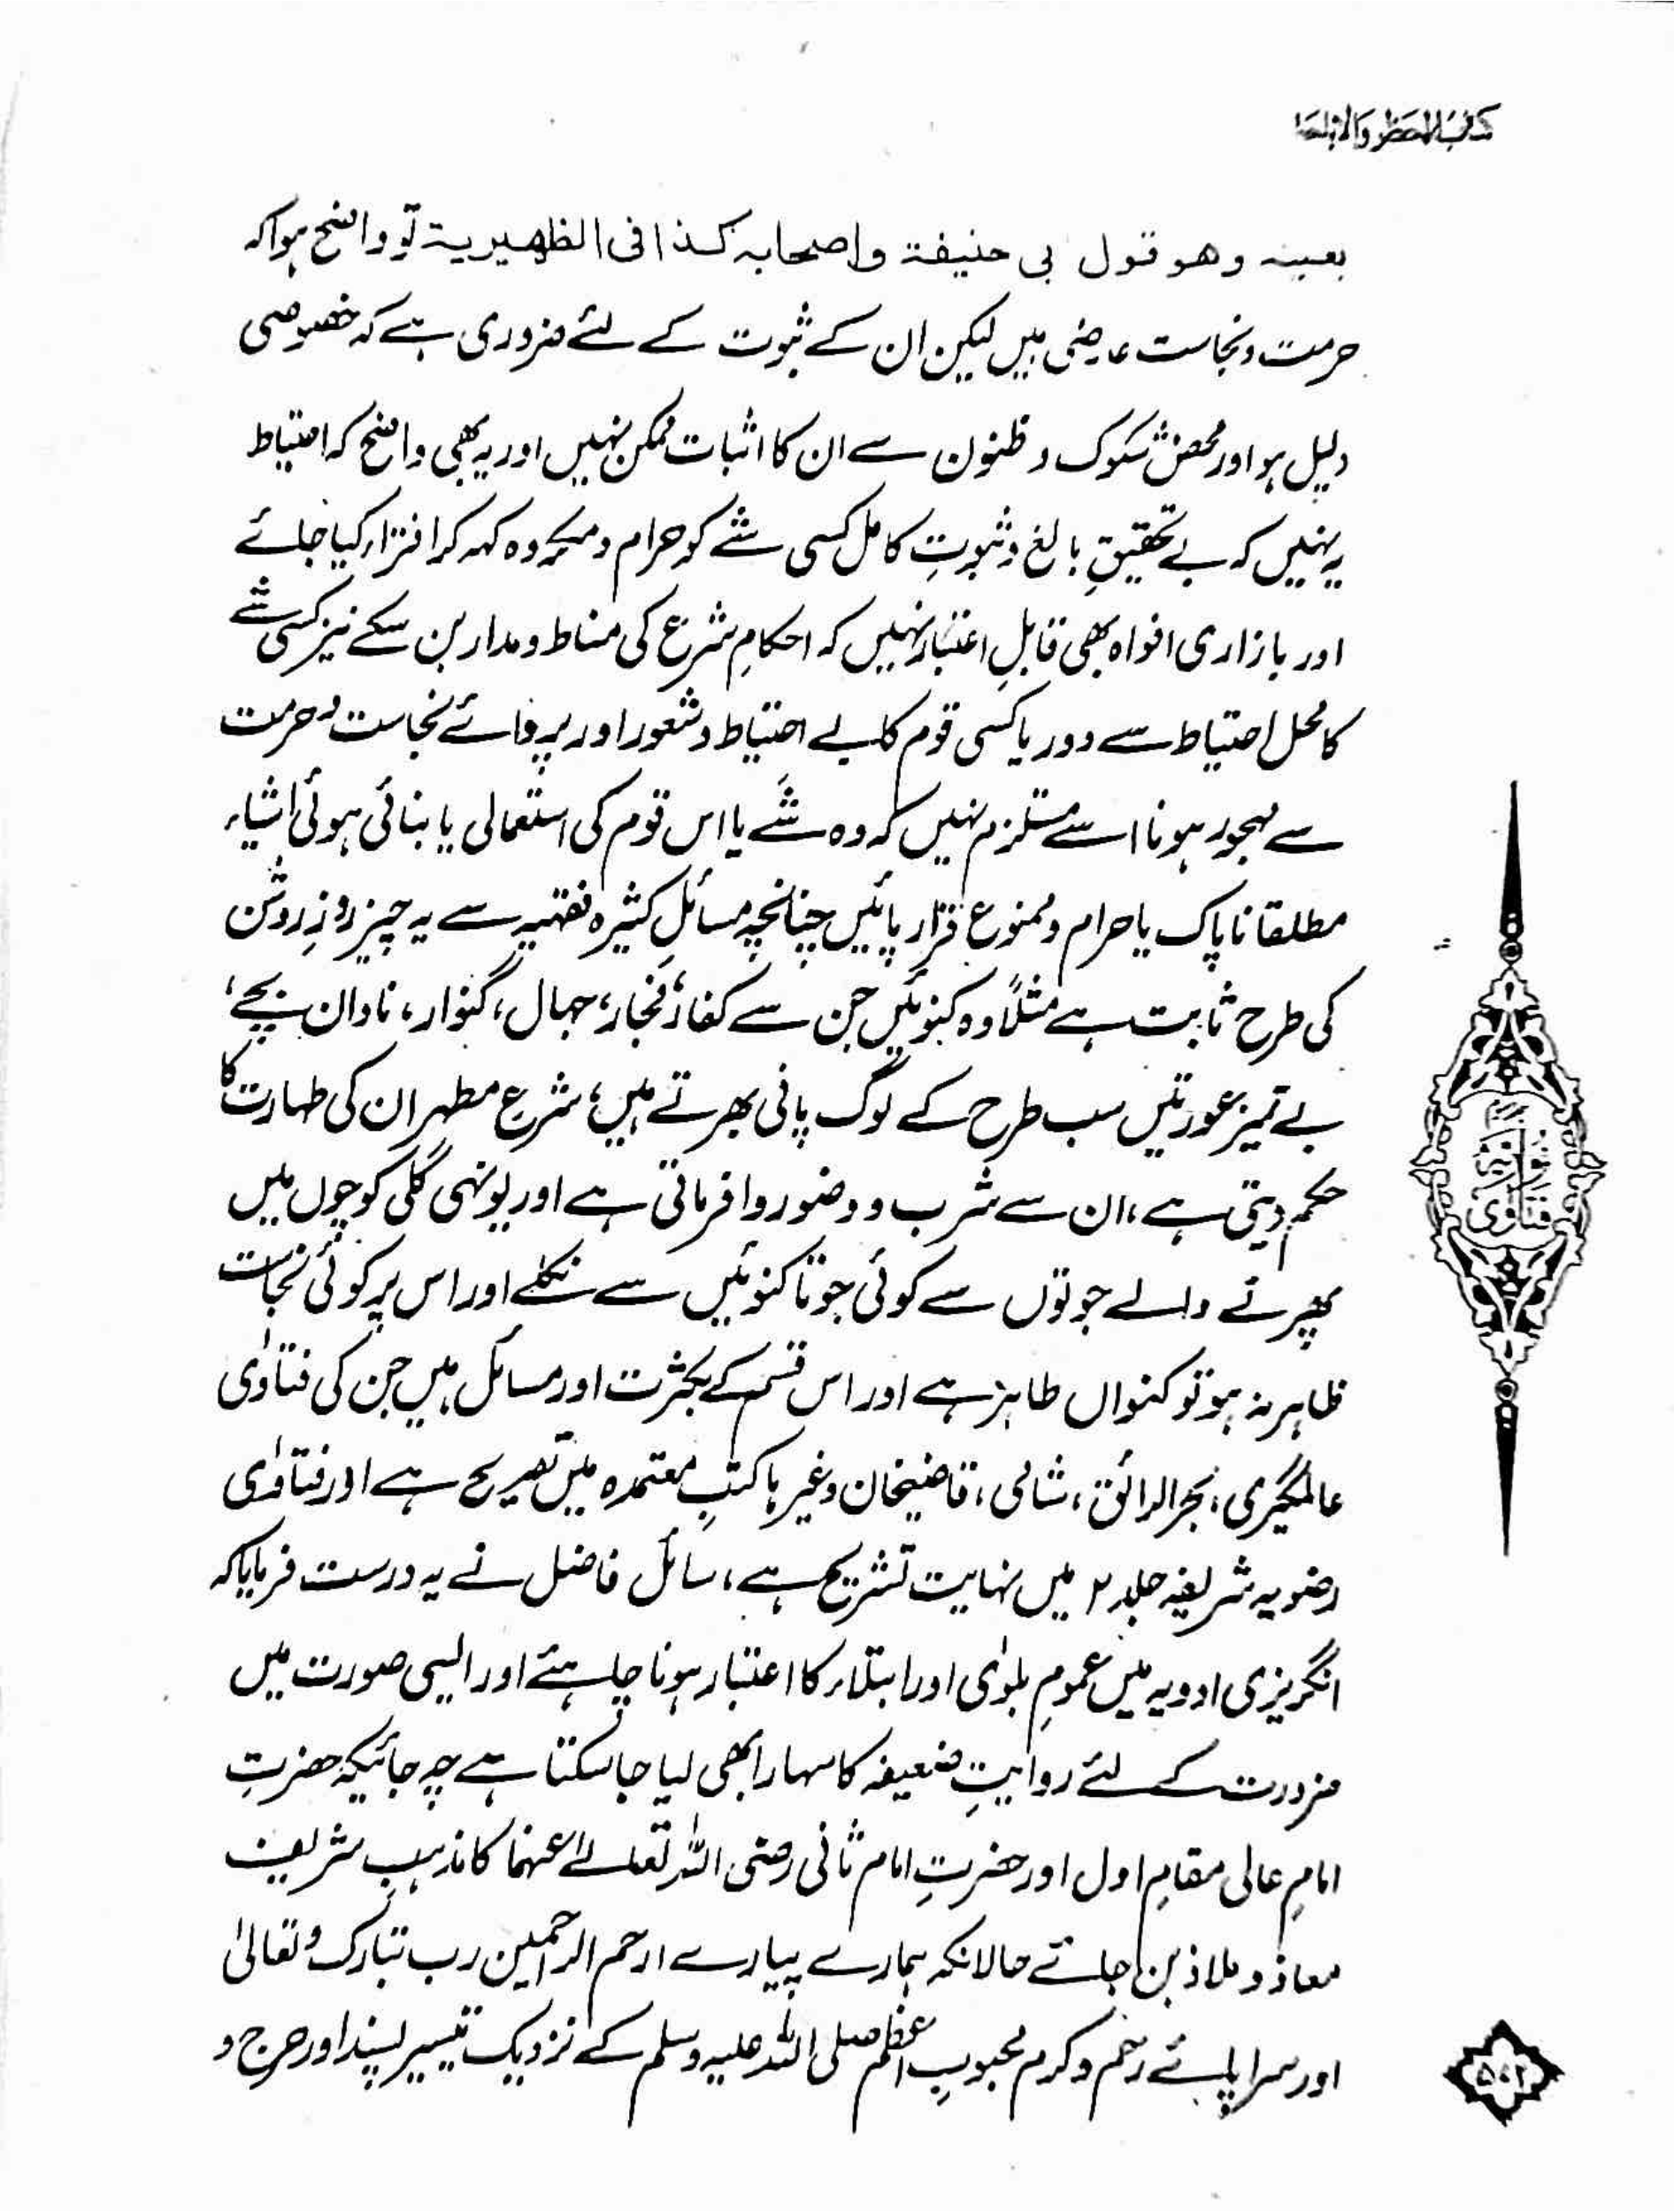 کتاب الحظر والاباحۃ
بعینہ وھو قول بی حنیفۃ واصحابہ کذا فی الظھیریۃ تو واضح ہوا کہ
حرمت و نجاست عارضی ہیں لیکن ان کے ثبوت کے لئے ضروری ہے کہ خصوصی
دلیل ہو اور محض شکوک و ظنون سے ان کا اثبات ممکن نہیں اور یہ بھی واضح کہ احتیاط
یہ نہیں کہ بے تحقیقِ بالغ و ثبوتِ کامل کسی شئے کو حرام و مکروہ کہہ کر افتراء کیا جائے
اور بازاری افواہ بھی قابلِ اعتبار نہیں کہ احکامِ شرع کی مناط و مدار بن سکے نیز کسی شے
کا محل احتیاط سے دور یا کسی قوم کا بے احتیاط و شعور اور پروائے نجاست و حرمت
سے مہجور ہونا اسے مستلزم نہیں کہ وہ شَے یا اس قوم کی استعمالی یا بنائی ہوئی اشیاء
مطلقا ناپاک یا حرام و ممنوع قرار پائیں چنانچہ مسائلِ کثیرہ فقہیہ سے یہ چیز روزِ روشن
کی طرح ثابت ہے مثلاً وہ کنوئیں جن سے کفار، فجار، جہال، گنوار، نادان بچے،
بے تمیز عورتیں سب طرح کے لوگ پانی بھرتے ہیں، شرع مطہر ان کی طہارت کا
حکم دیتی ہے، ان سے شرب و وضو روا فرماتی ہے اور یونہی گلی کوچوں میں
پھرنے والے جوتوں سے کوئی جوتا کنوئیں سے نکلے اور اس پر کوئی نجاست
ظاہر نہ ہو تو کنواں طاہر ہے اور اس قسم کے بکثرت اور مسائل ہیں جن کی فتاوٰی
عالمگیری، بحر الرائق، شامی، قاضیخان وغیرہا کتبِ معتمدہ میں تصریح ہے اور فتاوٰی
رضویہ شریفہ جلد ۲ میں نہایت تشریح ہے، سائل فاضل نے یہ درست فرمایا کہ
انگریزی ادویہ میں عمومِ بلوٰی اور ابتلاء کا اعتبار ہونا چاہئے اور ایسی صورت میں
ضرورت کے لئے روایتِ ضعیفہ کا سہارا بھی لیا جا سکتا ہے چہ جائیکہ حضرتِ
امامِ عالی مقامِ اول اور حضرتِ امام ثانی رضی اللہ تعالےٰ عنہما کا مذہبِ شریف
معاذ و ملاذ بن جائے حالانکہ ہمارے پیارے ارحم الراحمین رب تبارک و تعالیٰ
اور سراپائے رحم و کرم محبوبِ اعظم صلی اللہ علیہ وسلم کے نزدیک تیسیر پسند اور حرج و
فتاوٰی نوریہ
۵۰۲